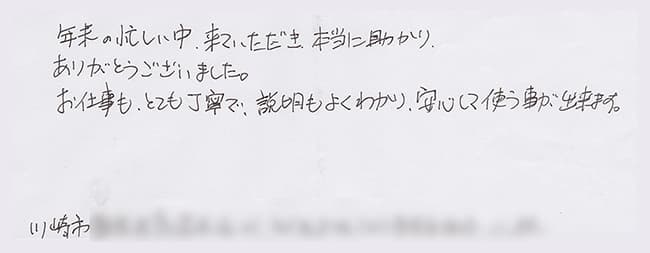 年末の忙しい中、来ていただき、本当に助かり、
ありがとうございました。
お仕事も、とても丁寧で、説明もよくわかり、安心して使う事が出来ます。
川崎市